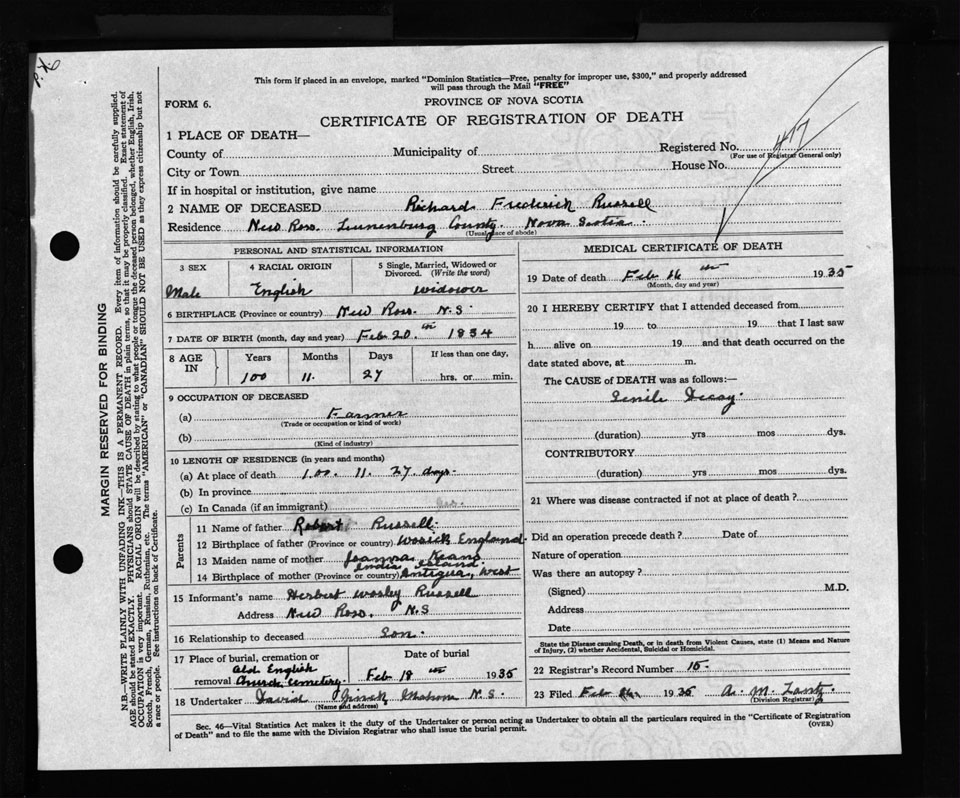 This form if placed in an envelope, marked "Dominion Statistics—Free, penalty for improper use, $300," and properly addressed
will pass through the Mail "FREE"
FORM 6.
PROVINCE OF NOVA SCOTIA
CERTIFICATE OF REGISTRATION OF DEATH
1 PLACE OF DEATH—
Registered No. 477
(For use of Registrar General only)
County of Municipality of
City or Town Street House No.
If in hospital or institution, give name
2 NAME OF DECEASED Richard Frederick Russell
Residence New Ross. Lunenburg County. Nova Scotia.
(Usual place of abode)
PERSONAL AND STATISTICAL INFORMATION
3 SEX 4 RACIAL ORIGIN 5 Single, Married, Widowed or
Divorced. (Write the word)
Male English widower
6 BIRTHPLACE (Province or country) New Ross. N.S
7 DATE OF BIRTH (month, day and year) Feb 20. th 1834
8 AGE IN Years Months Days If less than one day,
100 11. 27 hrs. or min.
9 OCCUPATION OF DECEASED
(a) Farmer
(Trade or occupation or kind of work)
(b)
(Kind of industry)
10 LENGTH OF RESIDENCE (in years and months)
(a) At place of death 100. 11. 27 days.
(b) In province
(c) In Canada (if an immigrant)
Parents
11 Name of father Robert Russell.
12 Birthplace of father (Province or country) England.
13 Maiden name of mother Joanna Keans
India Island.
14 Birthplace of mother (Province or country) Antigua, West
15 Informant's name Herbert Russell
Address New Ross. N.S
16 Relationship to deceased Son.
17 Place of burial, cremation or Date of burial
removal Old English
Church. Cemetery. Feb 18 th 1935
18 Undertaker David Mahone N.S.
(Name and address)
MEDICAL CERTIFICATE OF DEATH
19 Date of death Feb 16 th 1935
(Month, day and year)
20 I HEREBY CERTIFY that I attended deceased from
19 to 19 that I last saw
h alive on 19 and that death occurred on the
date stated above, at m.
The CAUSE of DEATH was as follows:—
Senile Decay.
(duration) yrs mos dys.
CONTRIBUTORY
(duration) yrs mos dys.
21 Where was disease contracted if not at place of death?
Did an operation precede death? Date of
Nature of operation
Was there an autopsy?
(Signed) M.D.
Address
Date
State the Disease causing Death, or in death from Violent Causes, state (1) Means and Nature
of Injury, (2) whether Accidental, Suicidal or Homicidal.
22 Registrar's Record Number 15.
23 Filed Feb 1935 A. M. Lantz
(Division Registrar)
Sec. 46—Vital Statistics Act makes it the duty of the Undertaker or person acting as Undertaker to obtain all the particulars required in the "Certificate of Registration
of Death" and to file the same with the Division Registrar who shall issue the burial permit.
(OVER)
MARGIN RESERVED FOR BINDING
N.B.—WRITE PLAINLY WITH UNFADING INK—THIS IS A PERMANENT RECORD. Every item of information should be carefully supplied.
AGE should be stated EXACTLY. PHYSICIANS should STATE CAUSE OF DEATH in plain terms, so that it may be properly classified. Exact statement of
OCCUPATION is very important. RACIAL ORIGIN will be described by stating to what people or tongue the deceased person belonged, whether English, Irish,
Scotch, French, German, Russian, Ruthenian, etc. The terms "AMERICAN" or "CANADIAN" SHOULD NOT BE USED as they express citizenship but not
a race or people. See instructions on back of Certificate.